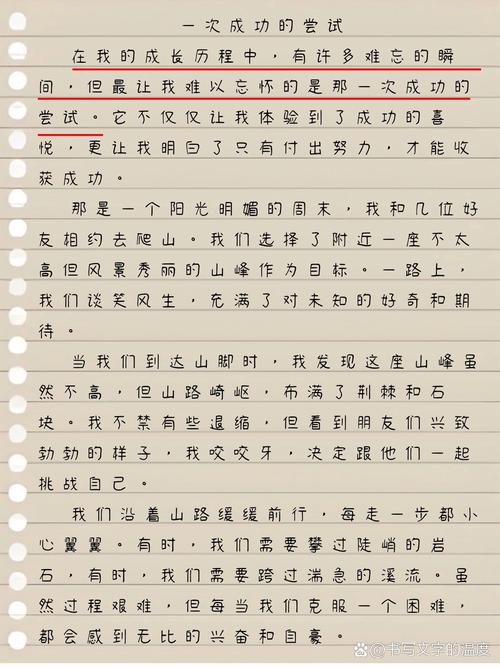 一次成功的尝试
在我的成长历程中，有许多难忘的瞬
间，但最让我难以忘怀的是那一次成功的
尝试。它不仅仅让我体验到了成功的喜
悦，更让我明白了只有付出努力，才能收
获成功。
那是一个阳光明媚的周末，我和几位好
友相约去爬山。我们选择了附近一座不太
高但风景秀丽的山峰作为目标。一路上，
我们谈笑风生，充满了对未知的好奇和期
待。
当我们到达山脚时，我发现这座山峰虽
然不高，但山路崎岖，布满了荆棘和石
块。我不禁有些退缩，但看到朋友们兴致
勃勃的样子，我咬咬牙，决定跟他们一起
挑战自己。
我们沿着山路缓缓前行，每走一步都小
心翼翼。有时，我们需要攀过陡峭的岩
石，有时，我们需要跨过湍急的溪流。虽
然过程艰难，但每当我们克服一个困难，
都会感到无比的兴奋和自豪。
@书写文字的温度